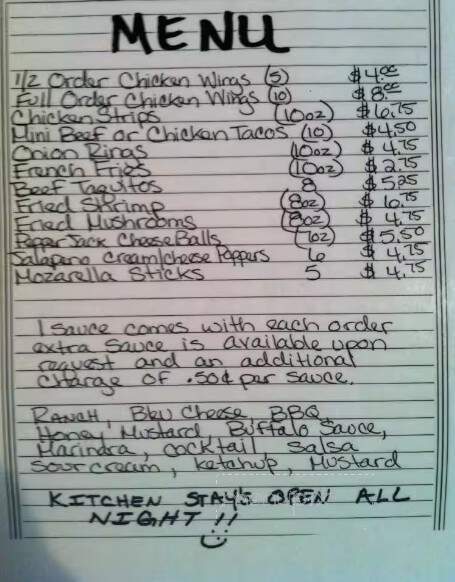 MENU
1/2 Order Chicken Wings (5) $4.00
Full Order Chicken Wings (10) $8.00
Chicken Strips (10oz) $6.75
Mini Beef or Chicken Tacos (10) $4.50
Onion Rings (10oz) $4.75
French Fries (10oz) $2.75
Beef Taquitos 8 $5.25
Fried Shrimp (8oz) $6.75
Fried Mushrooms (8oz) $4.75
Pepper Jack Cheese Balls (7oz) $5.50
Jalapeno Cream/cheese Poppers 6 $4.75
Mozarella Sticks 5 $4.75
1 sauce comes with each order
extra sauce is available upon
request and an additional
charge of .50¢ per sauce.
Ranch, Bleu Cheese, BBQ,
Honey Mustard Buffalo Sauce,
Marindra, cocktail salsa
sour cream, ketchup, Mustard
KITCHEN STAY'S OPEN ALL
NIGHT !!